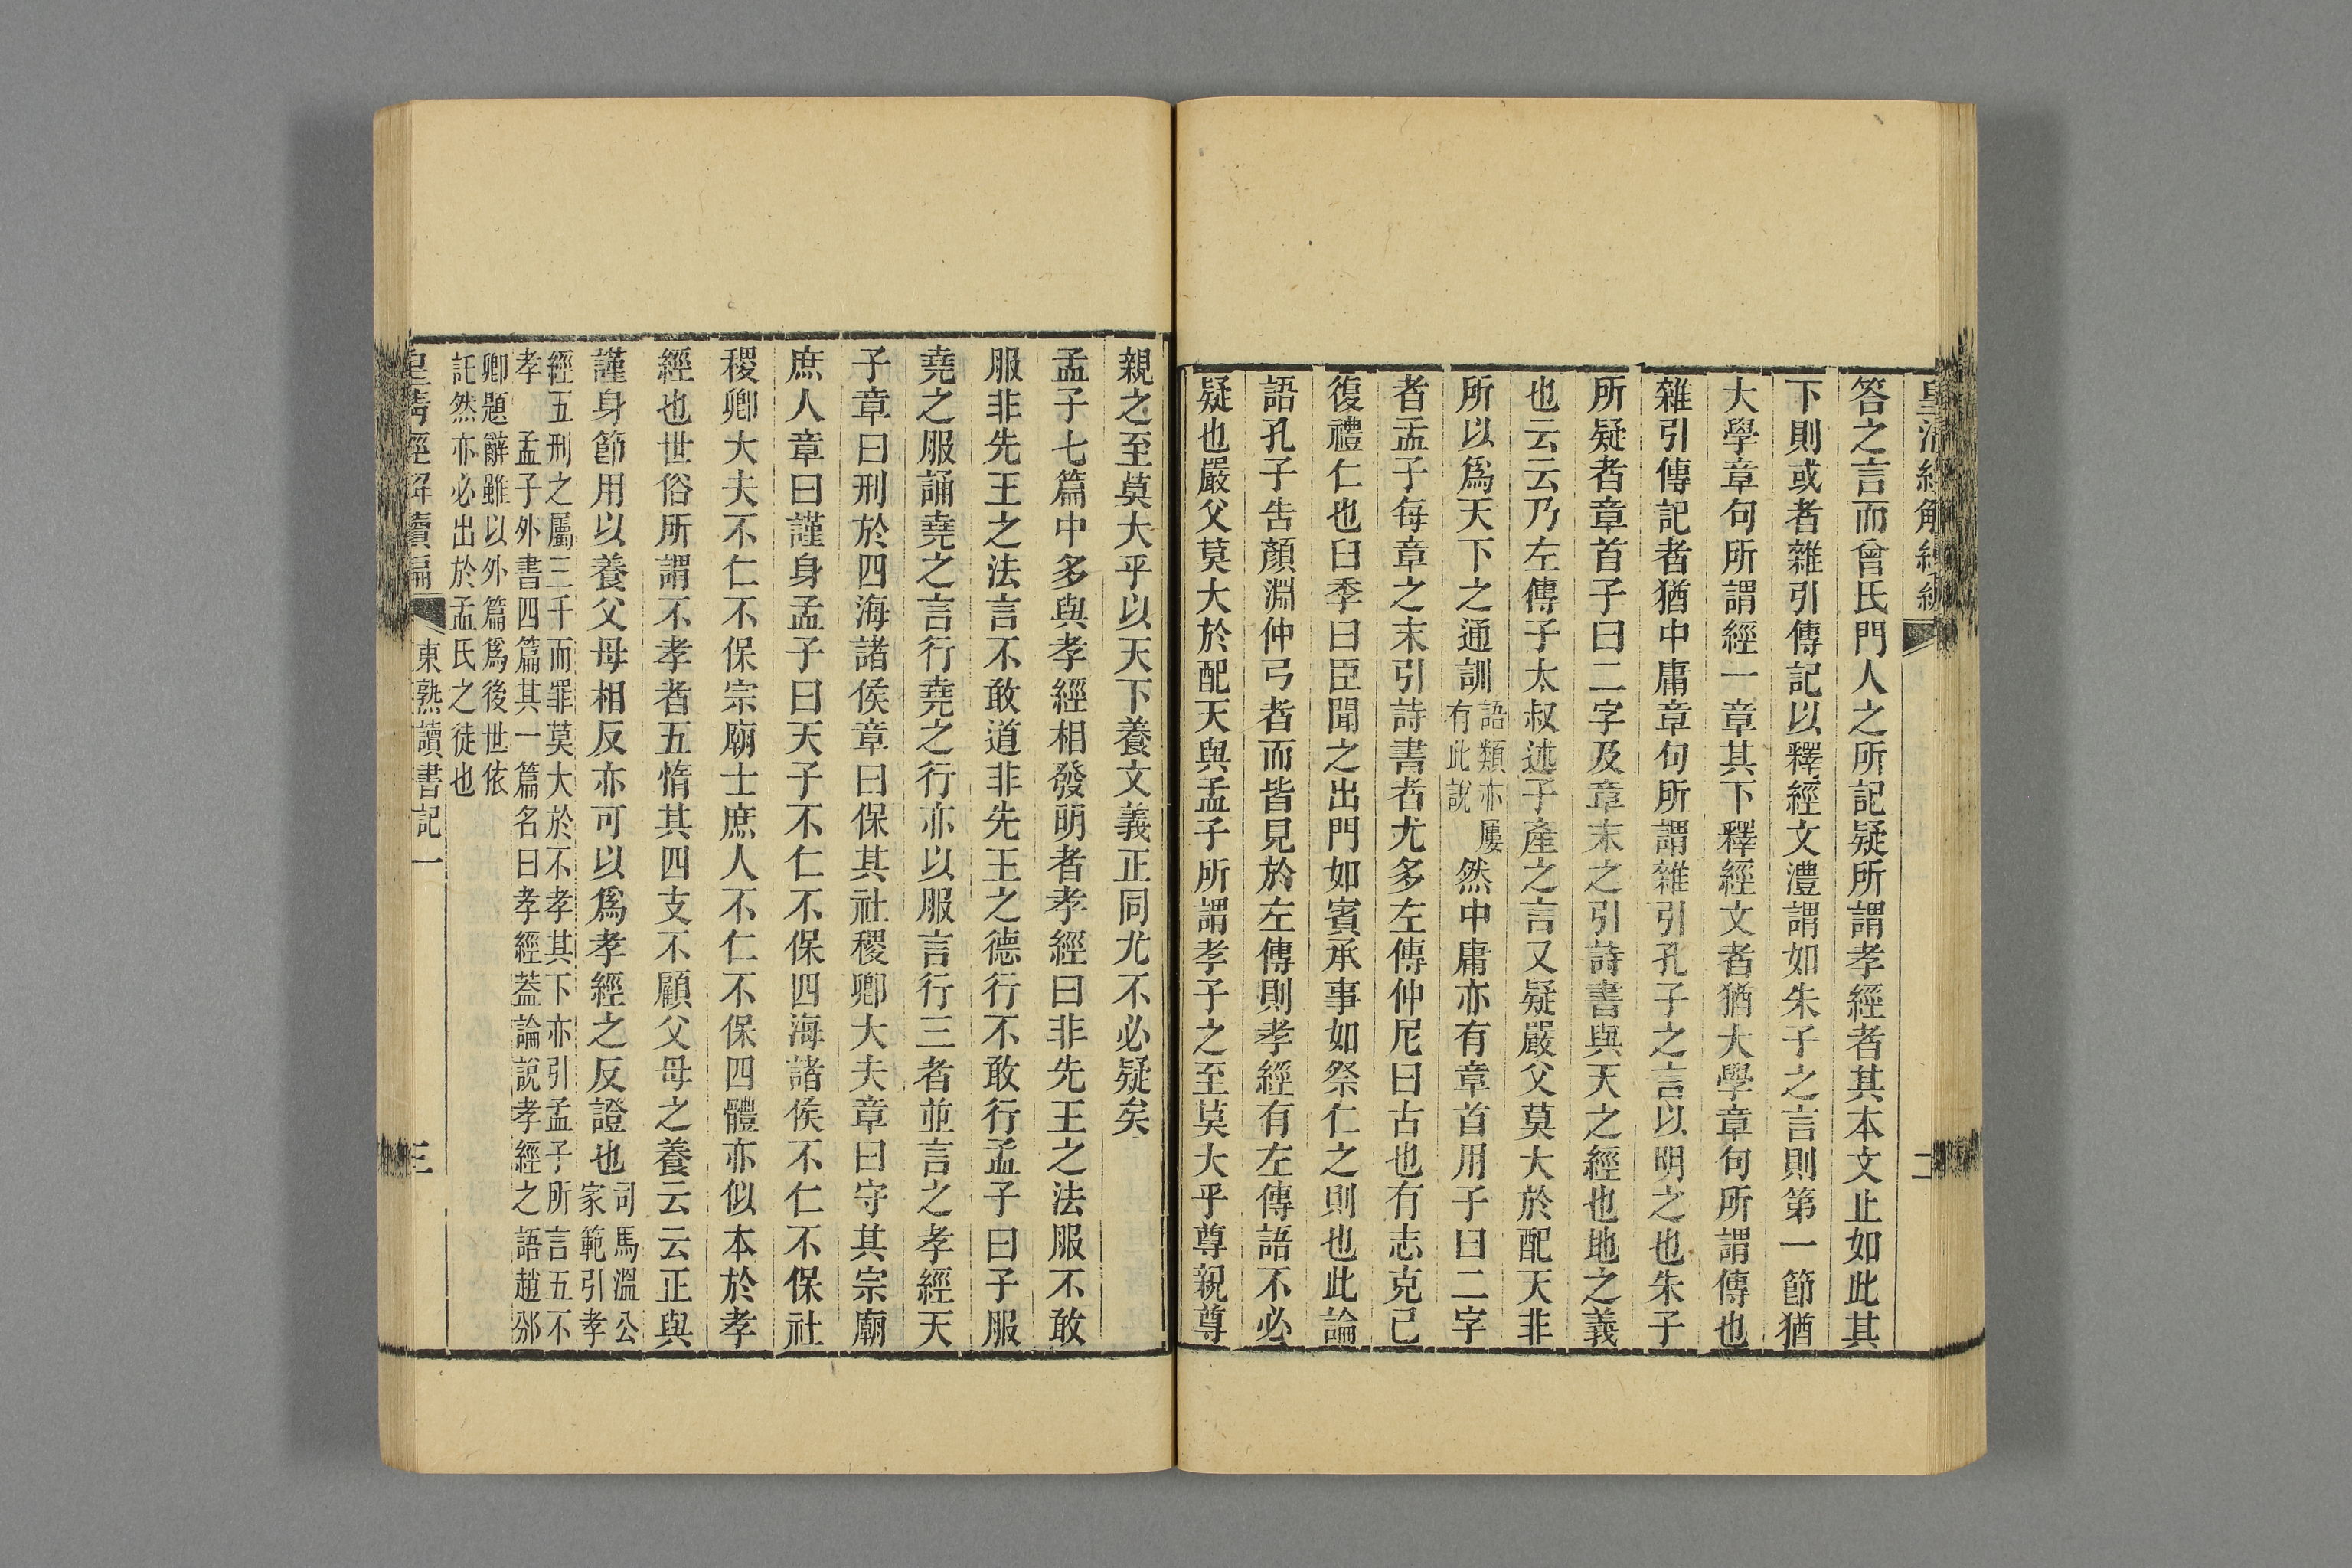 皇清經解續編 二
答之言而曾氏門人之所記疑所謂孝經者其本文止如此其
下則或者雜引傳記以釋經文澧謂如朱子之言則第一節猶
大學章句所謂經一章其下釋經文者猶大學章句所謂傳也
雜引傳記者猶中庸章句所謂雜引孔子之言以明之也朱子
所疑者章首子曰二字及章末之引詩書與天之經也地之義
也云云乃左傳子太叔述子產之言又疑嚴父莫大於配天非
所以爲天下之通訓語類亦屢有此說然中庸亦有章首用子曰二字
者孟子每章之末引詩書者尤多左傳仲尼曰古也有志克己
復禮仁也臼季曰臣聞之出門如賓承事如祭仁之則也此論
語孔子告顏淵仲弓者而皆見於左傳則孝經有左傳語不必
疑也嚴父莫大於配天與孟子所謂孝子之至莫大乎尊親尊
親之至莫大乎以天下養文義正同尤不必疑矣
孟子七篇中多與孝經相發明者孝經曰非先王之法服不敢
服非先王之法言不敢道非先王之德行不敢行孟子曰子服
堯之服誦堯之言行堯之行亦以服言行三者並言之孝經天
子章曰刑於四海諸侯章曰保其社稷卿大夫章曰守其宗廟
庶人章曰謹身孟子曰天子不仁不保四海諸侯不仁不保社
稷卿大夫不仁不保宗廟士庶人不仁不保四體亦似本於孝
經也世俗所謂不孝者五惰其四支不顧父母之養云云正與
謹身節用以養父母相反亦可以爲孝經之反證也司馬溫公家範引孝
經五刑之屬三千而罪莫大於不孝其下亦引孟子所言五不
孝 孟子外書四篇其一篇名曰孝經蓋論說孝經之語趙邠
卿題辭雖以外篇爲後世依
託然亦必出於孟氏之徒也
皇清經解續編 東塾讀書記一 三